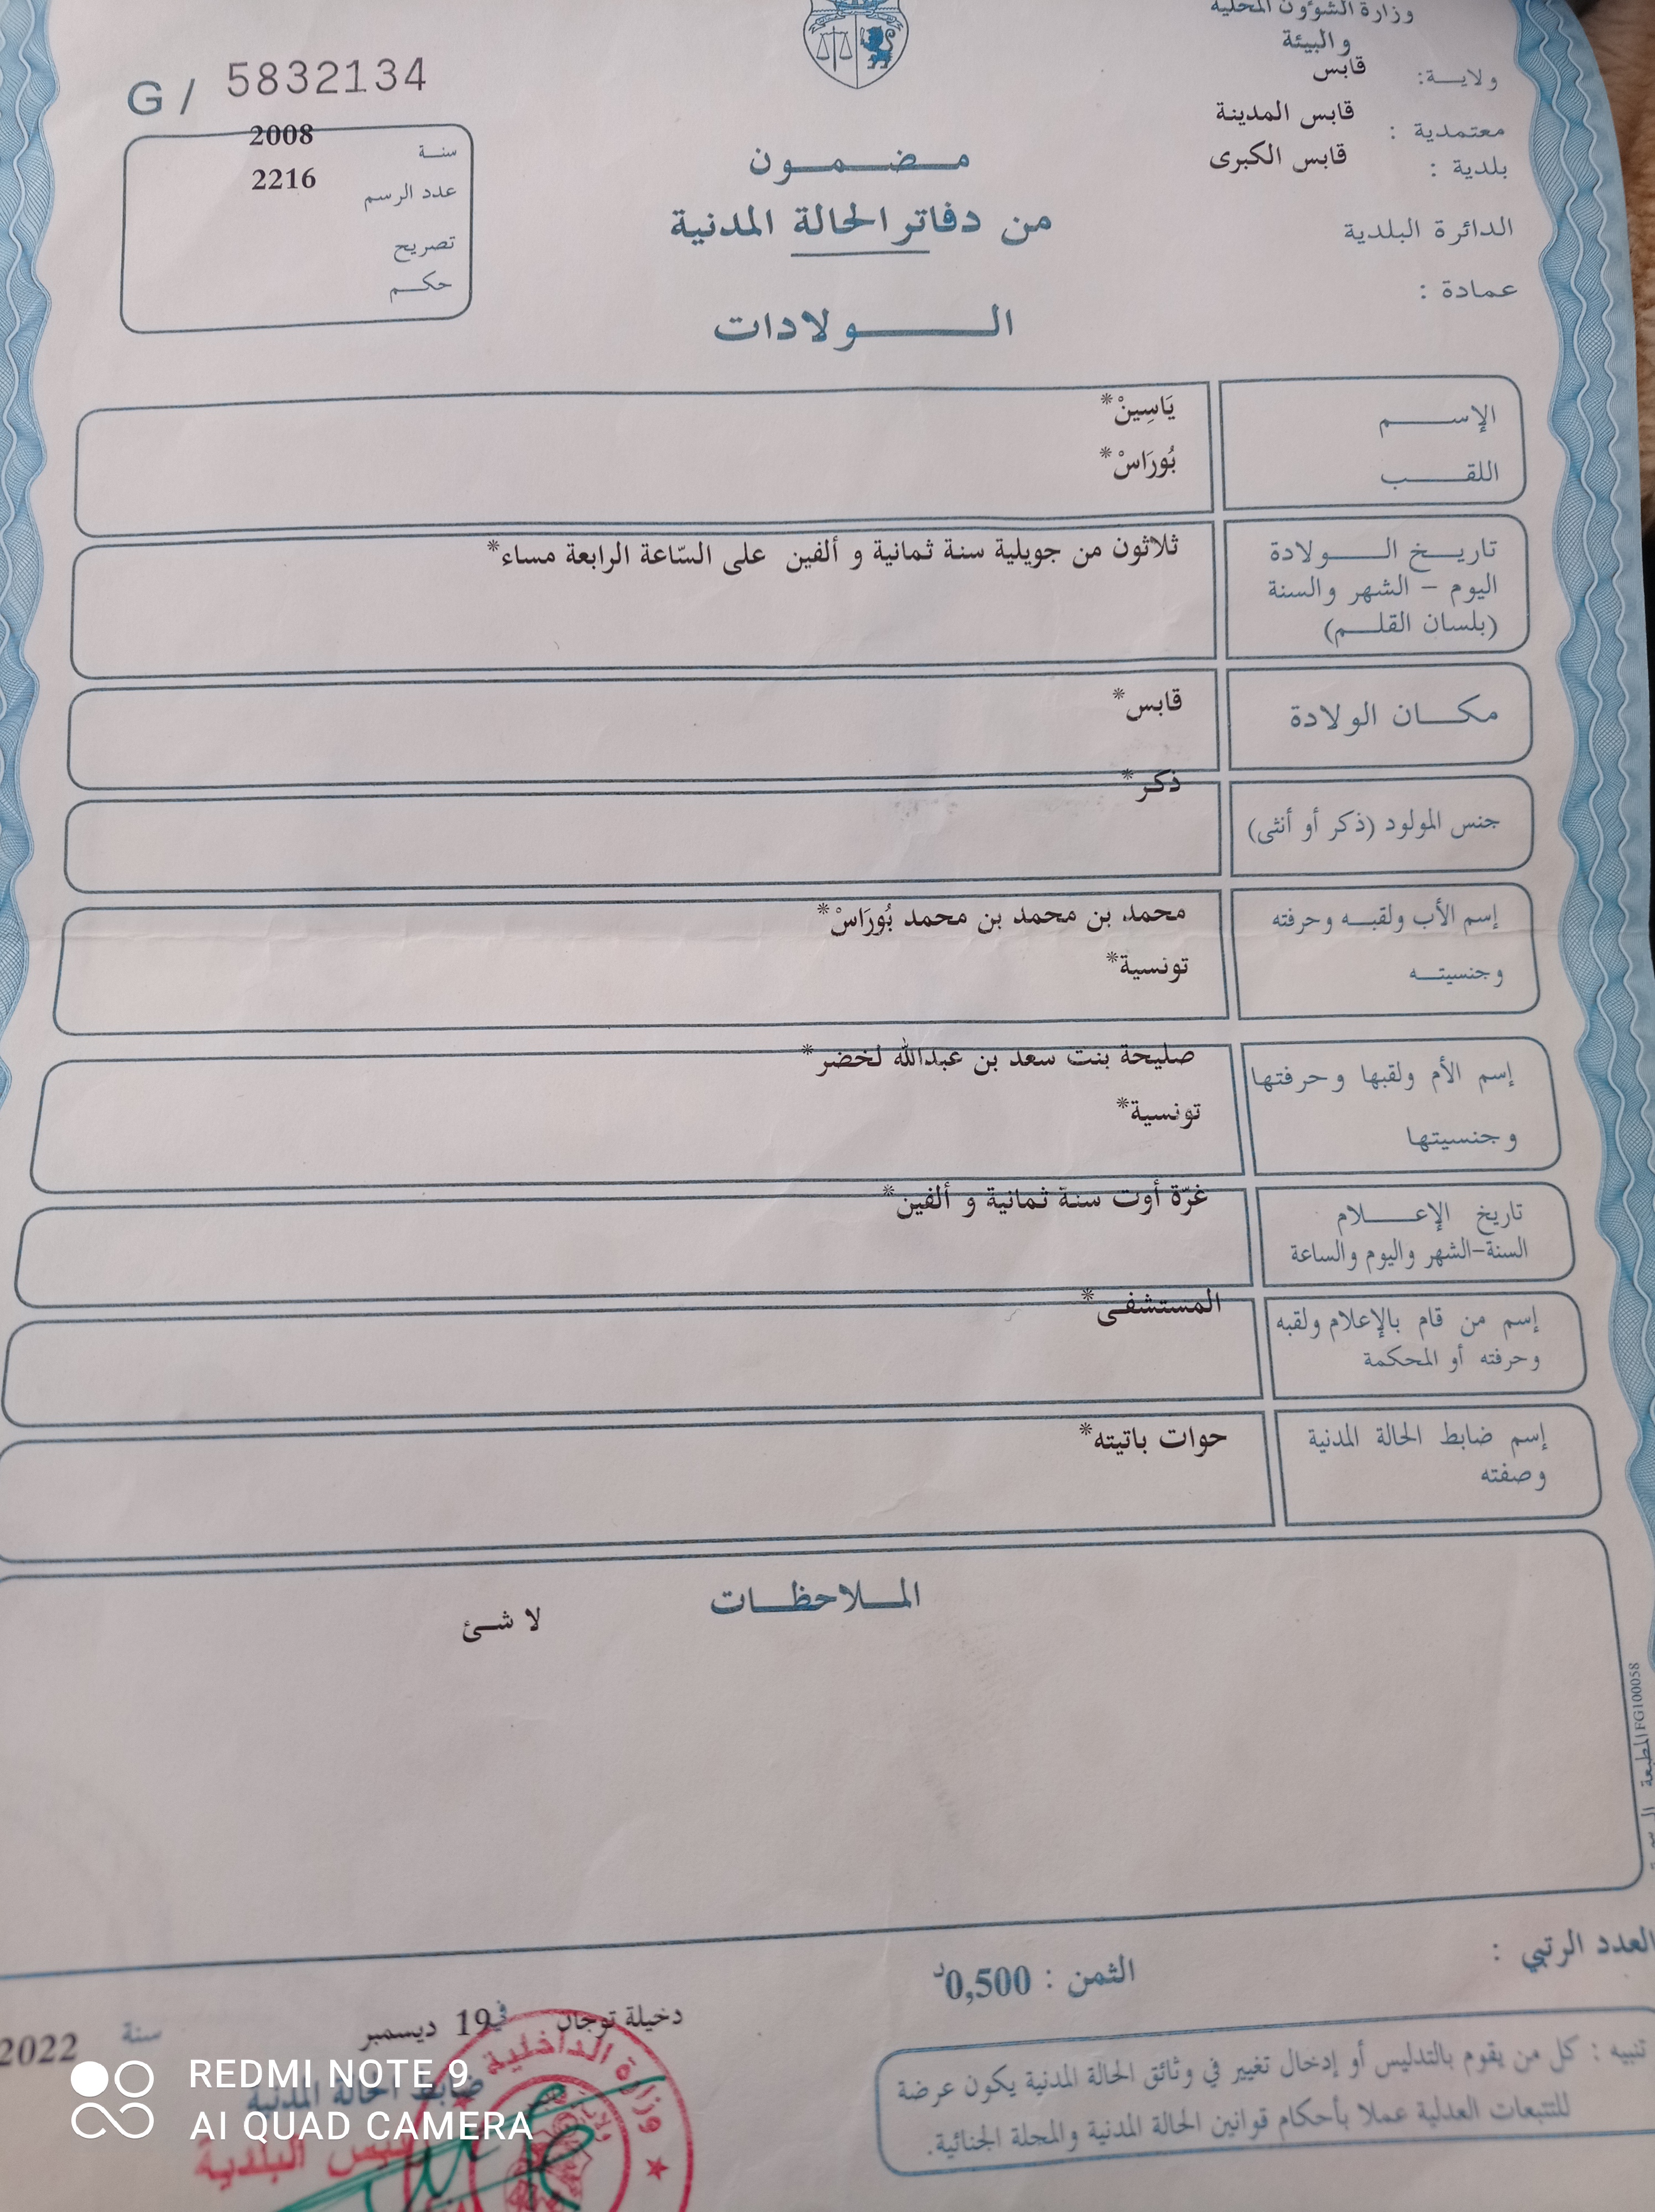 وزارة الشؤون المحلية
والبيئة
ولايـــة: قابس
معتمدية : قابس المدينة
بلدية : قابس الكبرى
الدائرة البلدية
عمادة :
G / 5832134
سنـة 2008
عدد الرسم 2216
تصريح
حكـــم
مـــضـــمـــون
من دفاتر الحالة المدنية
الـــــــولادات
الإســـــم يَاسِينْ*
اللقـــــب بُورَاسْ*
تاريــخ الـــــولادة ثلاثون من جويلية سنة ثمانية و ألفين على السّاعة الرابعة مساء*
اليوم – الشهر والسنة
(بلسان القلـــم)
مكـــان الولادة قابس*
ذكر*
جنس المولود (ذكر أو أنثى)
إسم الأب ولقبــه وحرفته محمد بن محمد بن محمد بُورَاسْ*
وجنسيتـــه تونسية*
إسم الأم ولقبها وحرفتها صليحة بنت سعد بن عبدالله لخضر*
وجنسيتها تونسية*
تاريخ الإعـــــلام غرّة أوت سنة ثمانية و ألفين*
السنة–الشهر واليوم والساعة
إسم من قام بالإعلام ولقبه المستشفى*
وحرفته أو المحكمة
إسم ضابط الحالة المدنية حوات باتيته*
وصفته
المـــلاحظـــات
لا شئ
المطبعة FG100058
العدد الرتبي :
الثمن : 0,500د
دخيلة توجان في 19 ديسمبر سنة 2022
ضابط الحالة المدنية
تنبيه : كل من يقوم بالتدليس أو إدخال تغيير في وثائق الحالة المدنية يكون عرضة
للتتبعات العدلية عملا بأحكام قوانين الحالة المدنية والمجلة الجنائية.
وزارة الداخلية
رئيس البلدية
REDMI NOTE 9
AI QUAD CAMERA